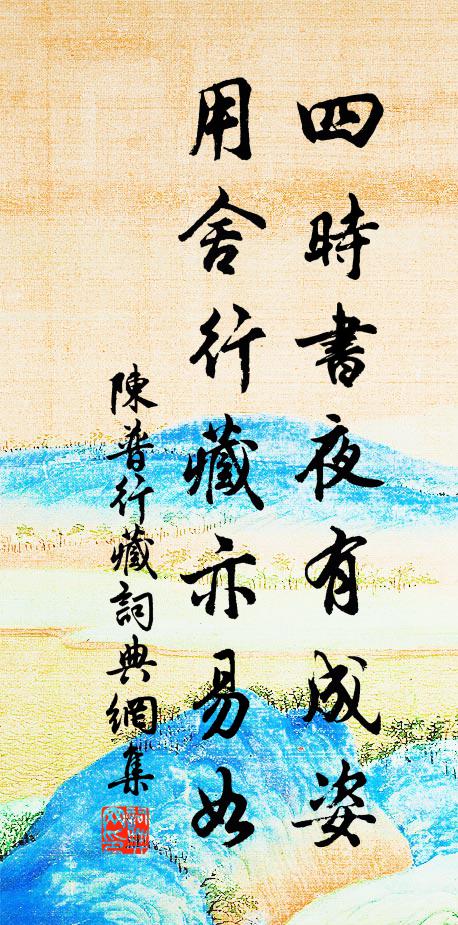 四時書夜有成姿
用舍行藏亦易知
陳普行藏詞典網集